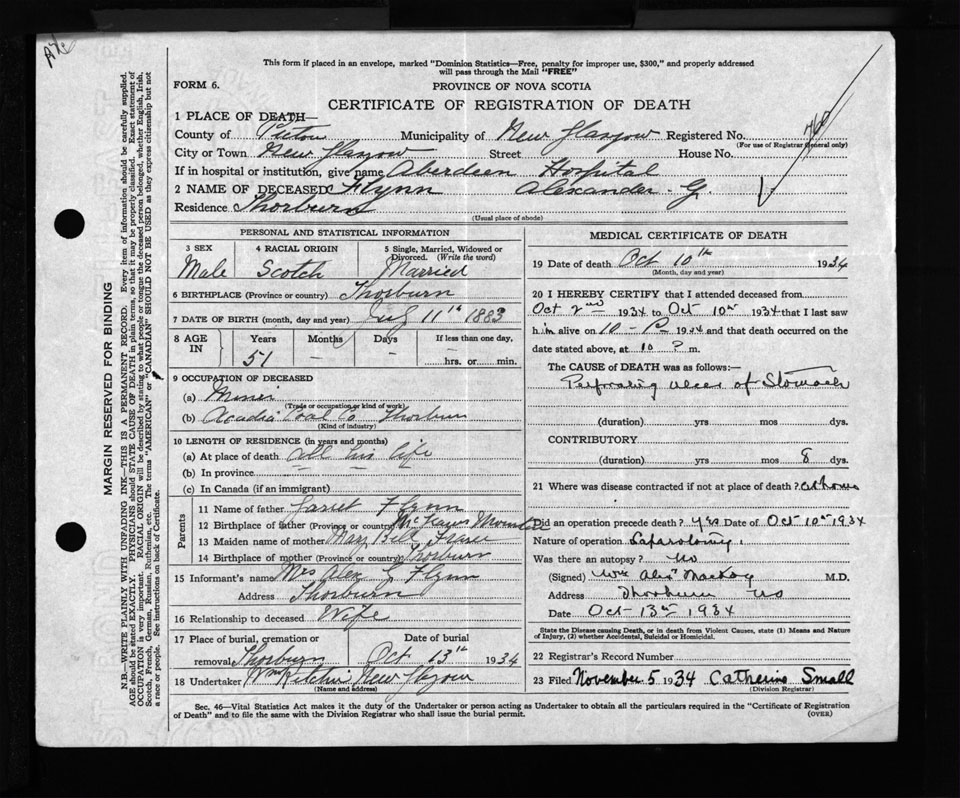 This form if placed in an envelope, marked "Dominion Statistics—Free, penalty for improper use, $300," and properly addressed
will pass through the Mail "FREE"
FORM 6.
PROVINCE OF NOVA SCOTIA
CERTIFICATE OF REGISTRATION OF DEATH
1 PLACE OF DEATH—
County of Pictou Municipality of New Glasgow Registered No.
(For use of Registrar General only)
City or Town New Glasgow Street House No.
If in hospital or institution, give name Aberdeen Hospital
2 NAME OF DECEASED Flynn Alexander G
Residence Thorburn
(Usual place of abode)
MARGIN RESERVED FOR BINDING
N.B.—WRITE PLAINLY WITH UNFADING INK—THIS IS A PERMANENT RECORD. Every item of information should be carefully supplied.
AGE should be stated EXACTLY. PHYSICIANS should STATE CAUSE OF DEATH in plain terms, so that it may be properly classified. Exact statement of
OCCUPATION is very important. RACIAL ORIGIN will be described by stating to what people or tongue the deceased person belonged, whether English, Irish,
Scotch, French, German, Russian, Ruthenian, etc. The terms "AMERICAN" or "CANADIAN" SHOULD NOT BE USED as they express citizenship but not
a race or people. See instructions on back of Certificate.
PERSONAL AND STATISTICAL INFORMATION
3 SEX 4 RACIAL ORIGIN 5 Single, Married, Widowed or
Divorced. (Write the word)
Male Scotch Married
6 BIRTHPLACE (Province or country) Thorburn
7 DATE OF BIRTH (month, day and year) July 11th 1883
8 AGE IN Years Months Days If less than one day,
51 — — hrs. or min.
9 OCCUPATION OF DECEASED
(a) Miner
(Trade or occupation or kind of work)
(b) Acadia Coal Co Thorburn
(Kind of industry)
10 LENGTH OF RESIDENCE (in years and months)
(a) At place of death all his life
(b) In province
(c) In Canada (if an immigrant)
Parents
11 Name of father Flynn
12 Birthplace of father (Province or country)
13 Maiden name of mother Mary Bell Fraser
14 Birthplace of mother (Province or country) Thorburn
15 Informant's name Mrs Alex G Flynn
Address Thorburn
16 Relationship to deceased Wife
17 Place of burial, cremation or removal Date of burial
Thorburn Oct 13th 1934
18 Undertaker Wm Ritchie New Glasgow
(Name and address)
MEDICAL CERTIFICATE OF DEATH
19 Date of death Oct 10th 1934
(Month, day and year)
20 I HEREBY CERTIFY that I attended deceased from
Oct 2nd 1934 to Oct 10th 1934 that I last saw
him alive on 10 — 1934 and that death occurred on the
date stated above, at 10 P m.
The CAUSE of DEATH was as follows:—
Perforating ulcer of Stomach
(duration) yrs mos dys.
CONTRIBUTORY
(duration) yrs mos 8 dys.
21 Where was disease contracted if not at place of death? at home
Did an operation precede death? yes Date of Oct 10th 1934
Nature of operation Laparotomy.
Was there an autopsy? No
(Signed) Wm Alex Mackay M.D.
Address Thorburn NS
Date Oct 13th 1934
State the Disease causing Death, or in death from Violent Causes, state (1) Means and Nature
of Injury, (2) whether Accidental, Suicidal or Homicidal.
22 Registrar's Record Number
23 Filed November 5 1934 Catherine Small
(Division Registrar)
Sec. 46—Vital Statistics Act makes it the duty of the Undertaker or person acting as Undertaker to obtain all the particulars required in the "Certificate of Registration
of Death" and to file the same with the Division Registrar who shall issue the burial permit. (OVER)